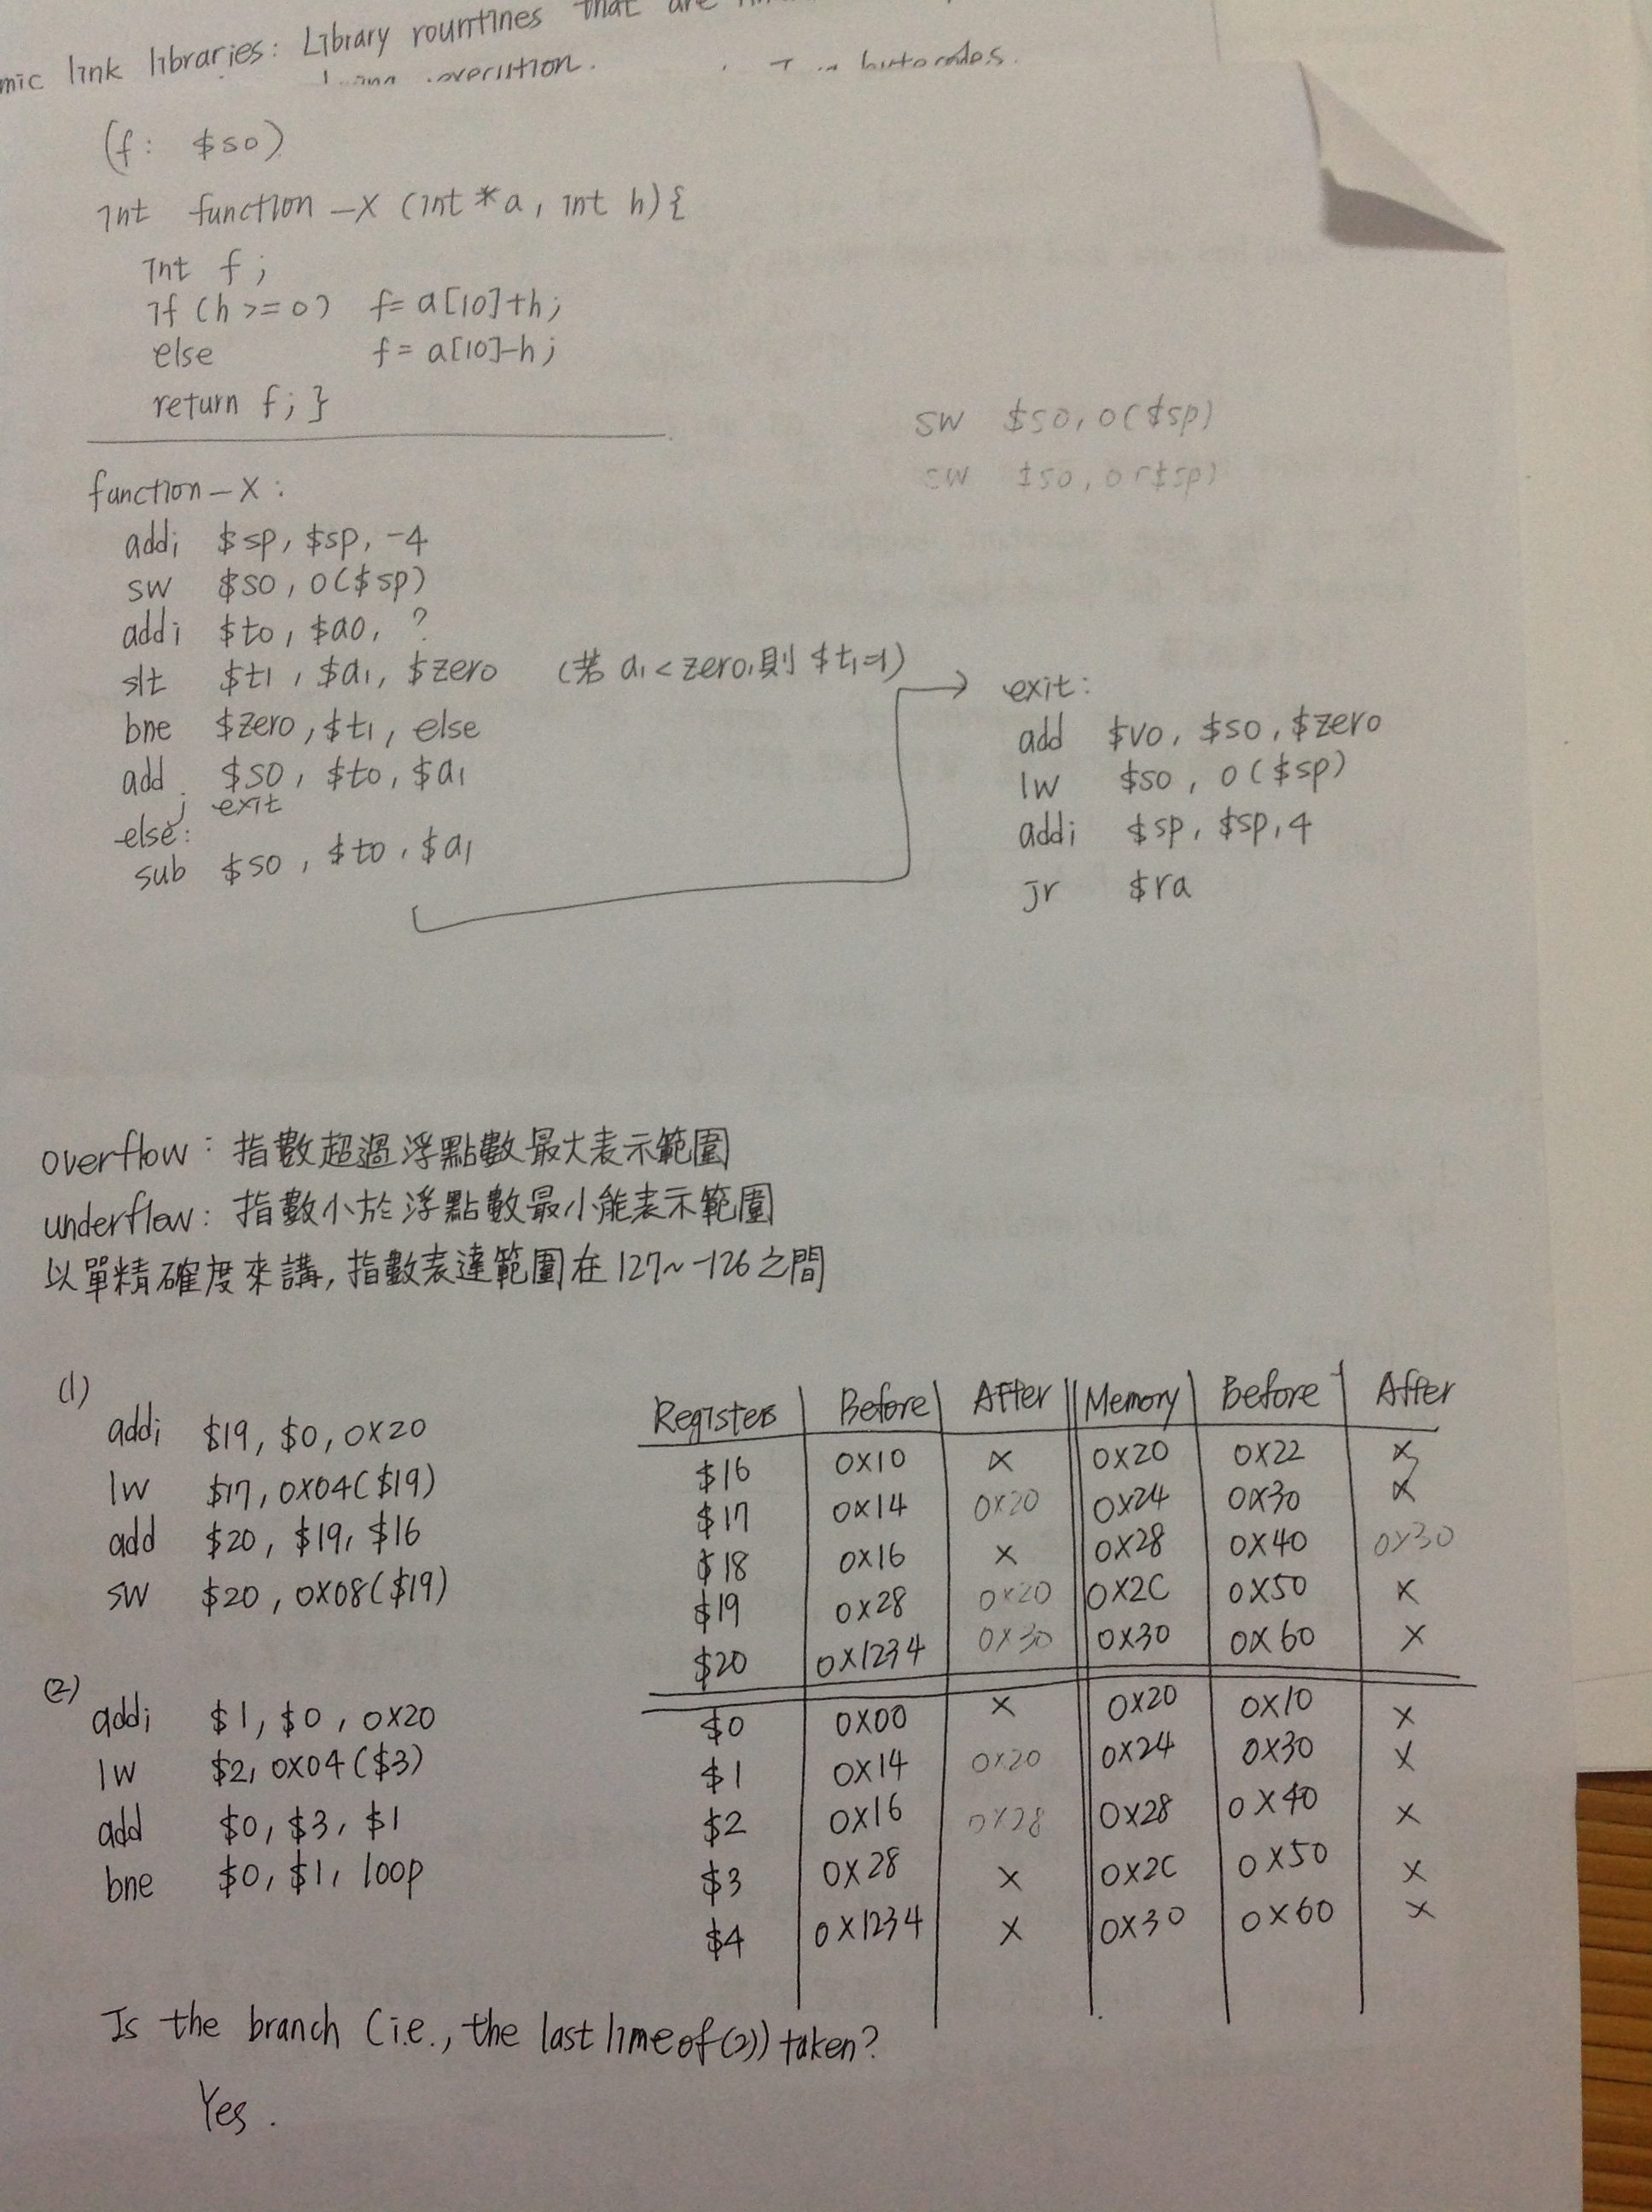 mic link libraries: Library rountines that are
execution.
(f: $s0)
int function-X (int *a, int h){
int f;
if (h >= 0) f= a[10]+h;
else f= a[10]-h;
return f; }
sw $s0, 0($sp)
sw $s0, 0($sp)
function-X:
addi $sp, $sp, -4
sw $s0, 0($sp)
addi $t0, $a0, ?
slt $t1, $a1, $zero (若 a1 < zero,則 $t1=1)
bne $zero, $t1, else
add $s0, $t0, $a1
j exit
else:
sub $s0, $t0, $a1
exit:
add $v0, $s0, $zero
lw $s0, 0($sp)
addi $sp, $sp, 4
jr $ra
overflow: 指數超過浮點數最大表示範圍
underflow: 指數小於浮點數最小能表示範圍
以單精確度來講,指數表達範圍在127~-126之間
(1)
addi $19, $0, 0x20
lw $17, 0x04($19)
add $20, $19, $16
sw $20, 0x08($19)
Registers Before After Memory Before After
$16 0x10 x 0x20 0x22 x
$17 0x14 0x20 0x24 0x30 x
$18 0x16 x 0x28 0x40 0x30
$19 0x28 0x20 0x2C 0x50 x
$20 0x1234 0x30 0x30 0x60 x
(2)
addi $1, $0, 0x20
lw $2, 0x04($3)
add $0, $3, $1
bne $0, $1, loop
$0 0x00 x 0x20 0x10 x
$1 0x14 0x20 0x24 0x30 x
$2 0x16 0x28 0x28 0x40 x
$3 0x28 x 0x2C 0x50 x
$4 0x1234 x 0x30 0x60 x
Is the branch (i.e., the last lime of (2)) taken?
Yes.